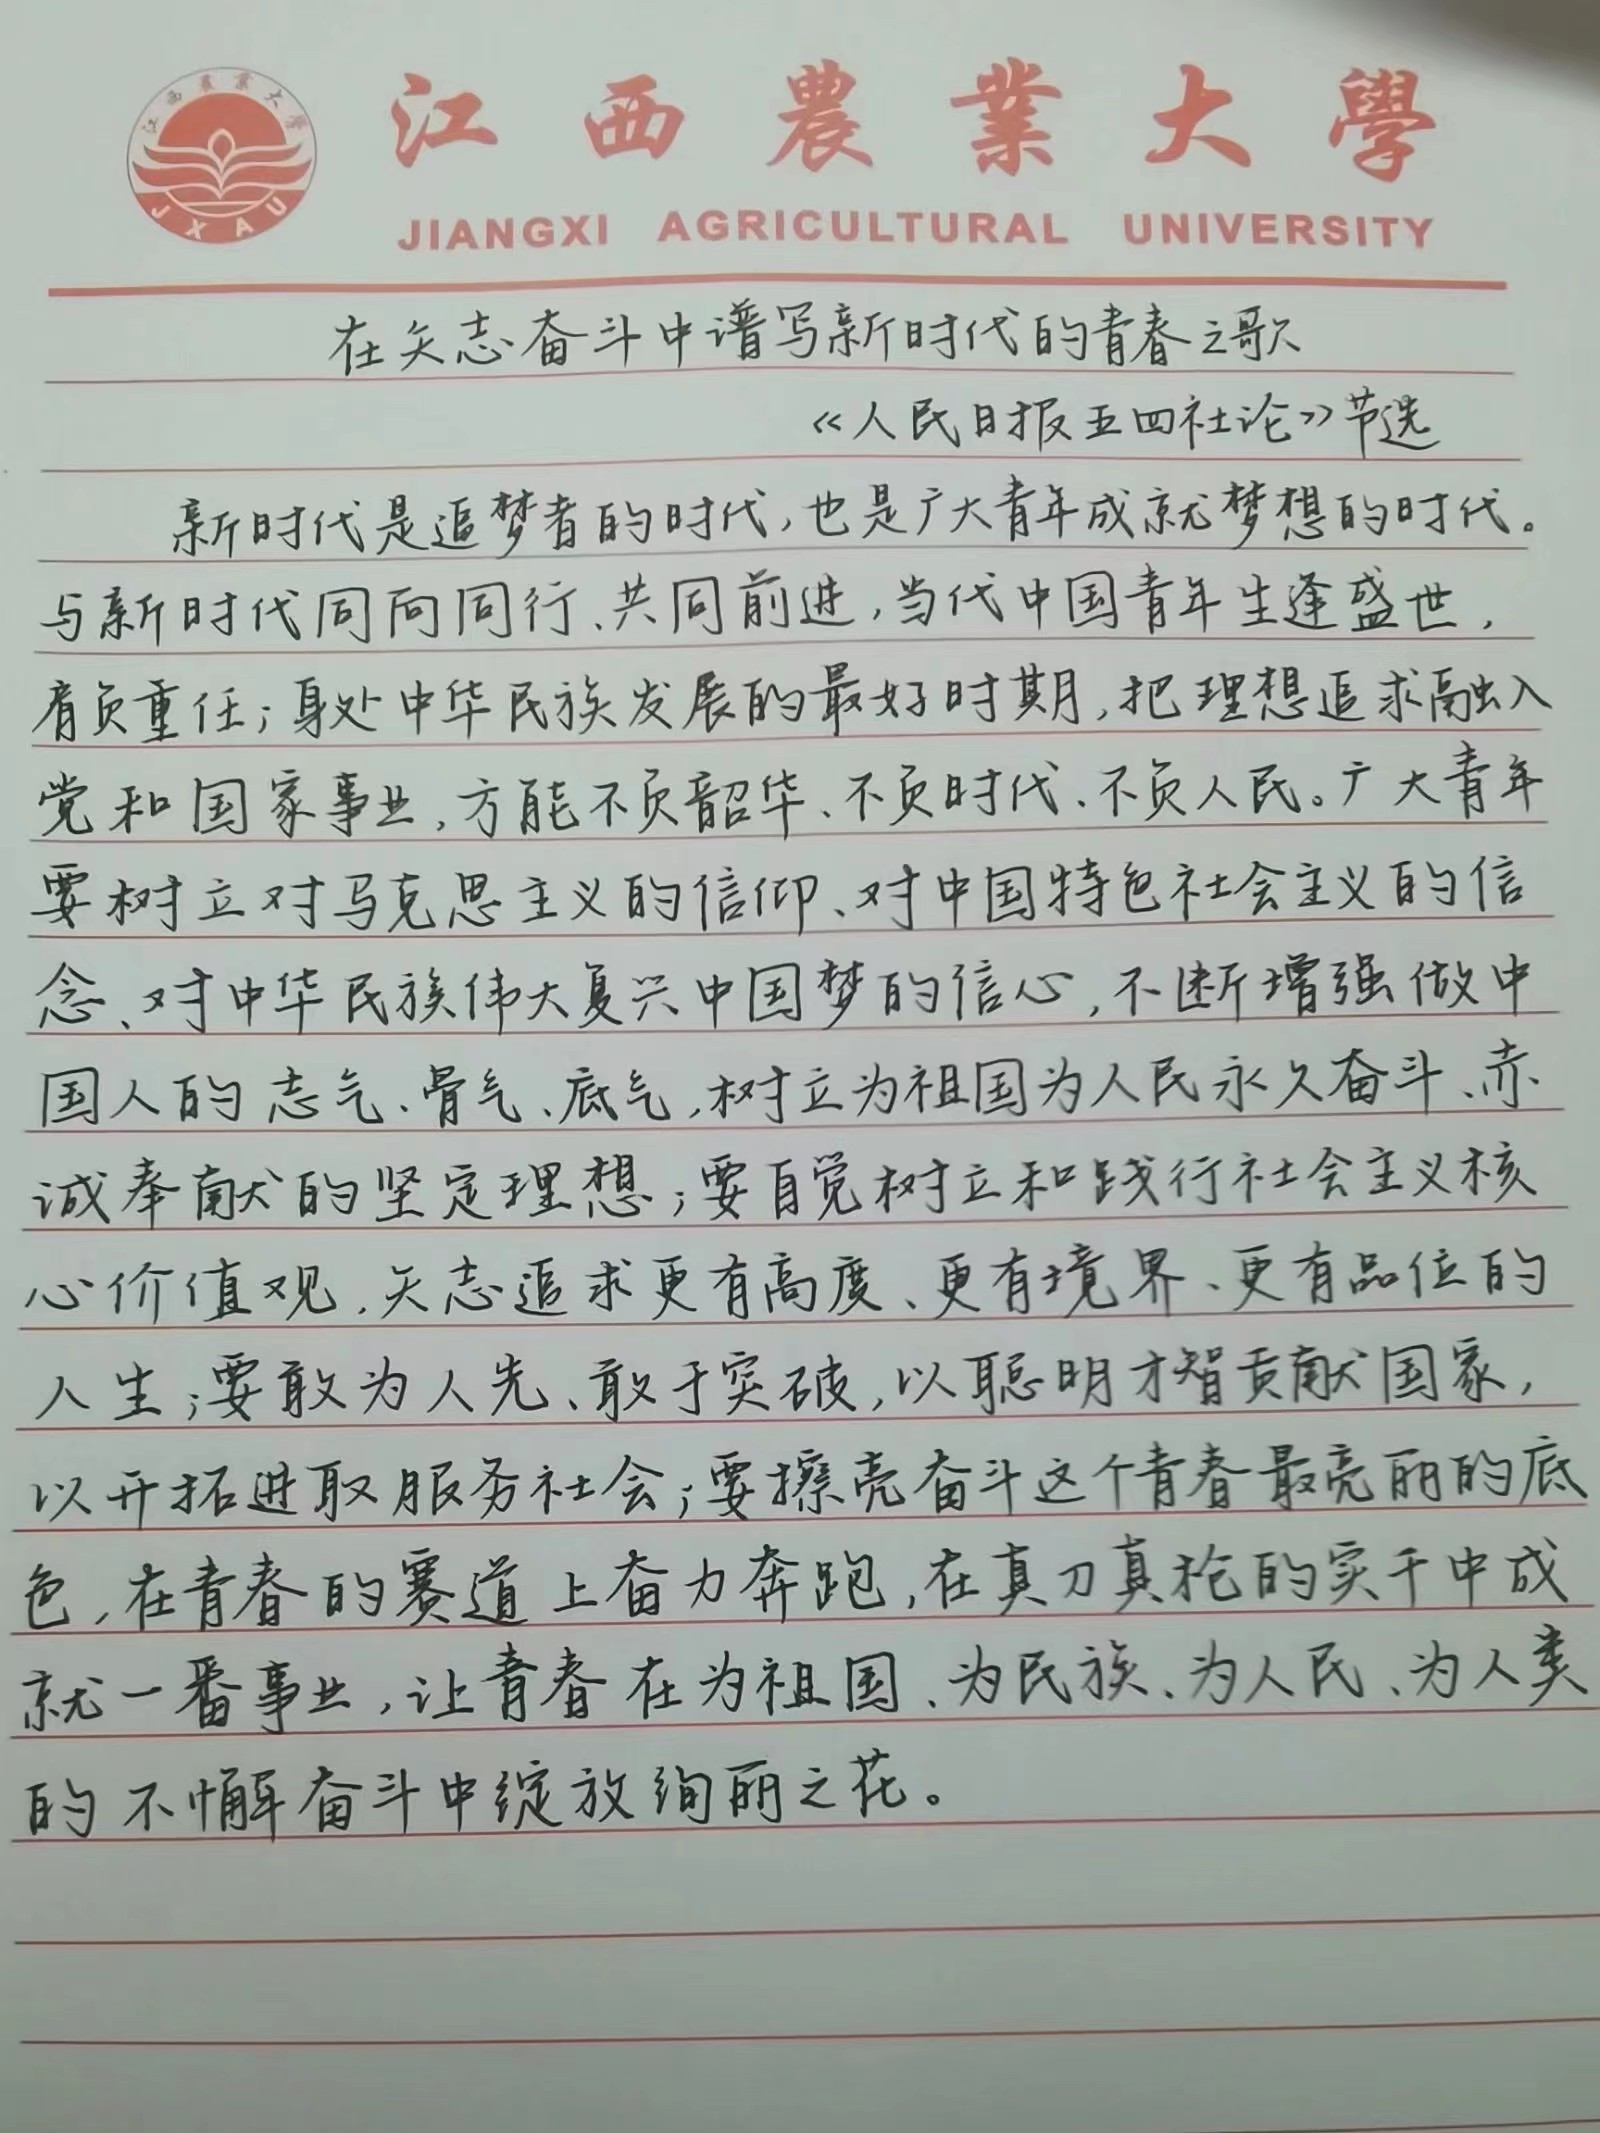 江西農業大學
JXAU
江西農業大學
JIANGXI AGRICULTURAL UNIVERSITY
在矢志奋斗中谱写新时代的青春之歌
《人民日报五四社论》节选
新时代是追梦者的时代,也是广大青年成就梦想的时代。
与新时代同向同行、共同前进,当代中国青年生逢盛世,
肩负重任;身处中华民族发展的最好时期,把理想追求融入
党和国家事业,方能不负韶华、不负时代、不负人民。广大青年
要树立对马克思主义的信仰、对中国特色社会主义的信
念、对中华民族伟大复兴中国梦的信心,不断增强做中
国人的志气、骨气、底气,树立为祖国为人民永久奋斗、赤
诚奉献的坚定理想;要自觉树立和践行社会主义核
心价值观,矢志追求更有高度、更有境界、更有品位的
人生;要敢为人先、敢于突破,以聪明才智贡献国家,
以开拓进取服务社会;要擦亮奋斗这个青春最亮丽的底
色,在青春的赛道上奋力奔跑,在真刀真枪的实干中成
就一番事业,让青春在为祖国、为民族、为人民、为人类
的不懈奋斗中绽放绚丽之花。